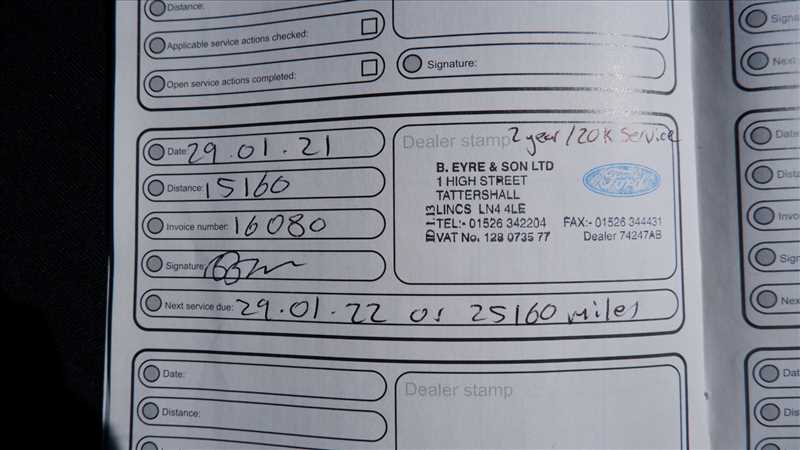 Distance:
Applicable service actions checked:
Open service actions completed:
Signature:
Date: 29.01.21
Distance: 15160
Invoice number: 16080
Signature:
Next service due: 29.01.22 or 25160 miles
Dealer stamp 2 year/20K Service
B. EYRE & SON LTD
1 HIGH STREET
TATTERSHALL
LINCS LN4 4LE
TEL:- 01526 342204 FAX:- 01526 344431
VAT No. 128 0735 77 Dealer 74247AB
Ford
Date:
Distance:
Dealer stamp
Signa
Next
Date
Dista
Invoic
Sign
Next
Dat
Dis